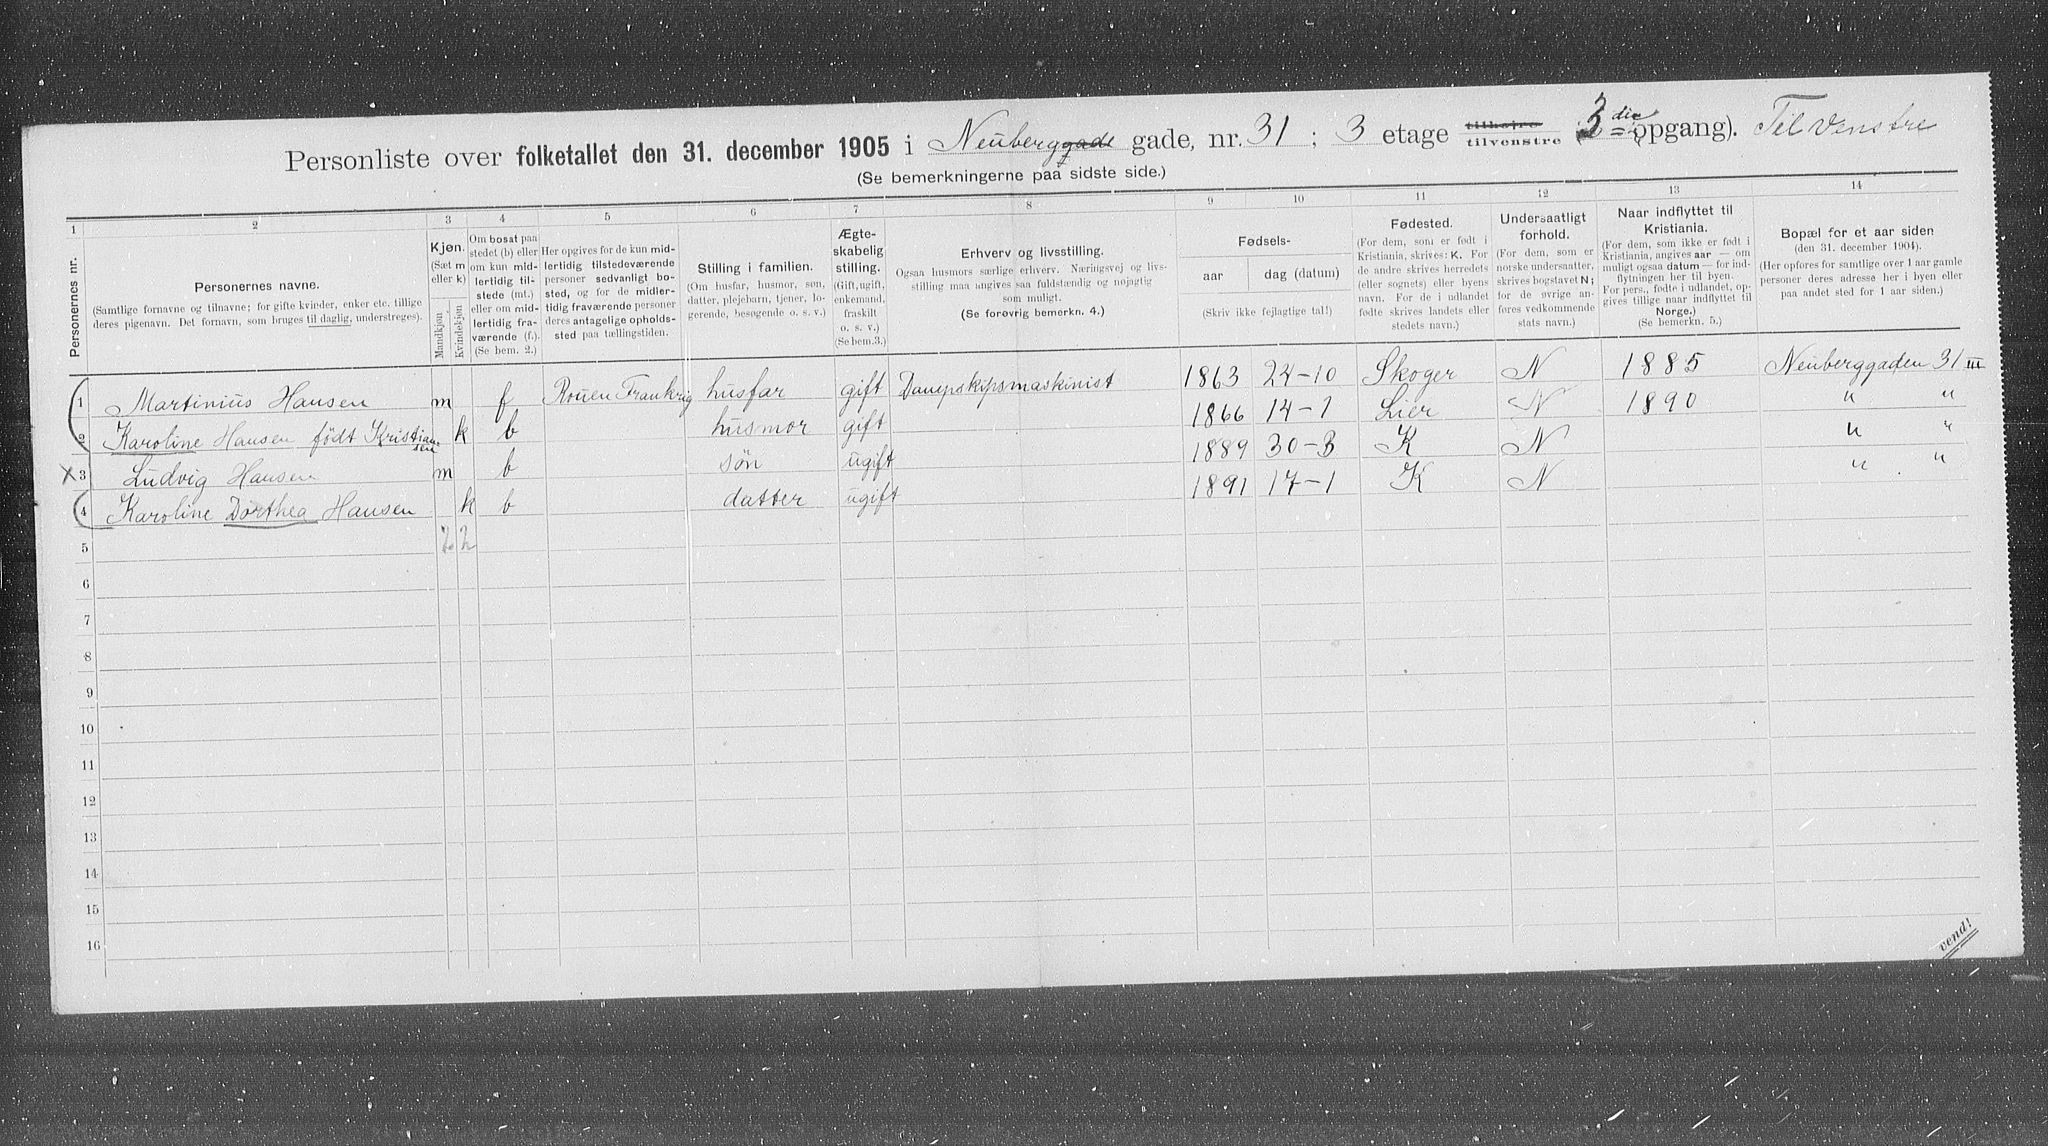 Personliste over folketallet den 31. december 1905 i Neuberggade gade, nr. 31 ; 3 etage tilhøjre tilvenstre 3die opgang). Til venstre
(Se bemerkningerne paa sidste side.)
1 2 3 4 5 6 7 8 9 10 11 12 13 14
Personernes nr.
Personernes navne.
(Samtlige fornavne og tilnavne; for gifte kvinder, enker etc. tillige
deres pigenavn. Det fornavn, som bruges til daglig, understreges).
Kjøn.
(Sæt m
eller k)
Mandkjøn
Kvindekjøn
Om bosat paa
stedet (b) eller
om kun mid-
lertidig til-
stede (mt.)
eller om mid-
lertidig fra-
værende (f.).
(Se bem. 2.)
Her opgives for de kun mid-
lertidig tilstedeværende
personer sedvanligt bo-
sted, og for de midler-
tidig fraværende personer
deres antagelige opholds-
sted paa tællingstiden.
Stilling i familien.
(Om husfar, husmor, søn,
datter, plejebarn, tjener, lo-
gerende, besøgende o. s. v.)
Ægte-
skabelig
stilling.
(Gift, ugift,
enkemand,
fraskilt
o. s. v.)
(Se bem.3.)
Erhverv og livsstilling.
Ogsaa husmors særlige erhverv. Næringsvej og livs-
stilling maa angives saa fuldstændig og nøjagtig
som muligt.
(Se forøvrig bemerkn. 4.)
Fødsels-
aar dag (datum)
(Skriv ikke fejlagtige tal!)
Fødested.
(For dem, som er født i
Kristiania, skrives: K. For
de andre skrives herredets
(eller sognets) eller byens
navn. For de i udlandet
fødte skrives landets eller
stedets navn.)
Undersaatligt
forhold.
(For dem, som er
norske undersaatter,
skrives bogstavet N;
for de øvrige an-
føres vedkommende
stats navn.)
Naar indflyttet til
Kristiania.
(For dem, som ikke er født i
Kristiania, angives aar — om
muligt ogsaa datum — for ind-
flytningen her til byen.
For pers., fødte i udlandet, op-
gives tillige naar indflyttet til
Norge.)
(Se bemerkn. 5.)
Bopæl for et aar siden
(den 31. december 1904).
(Her opføres for samtlige over 1 aar gamle
personer deres adresse her i byen eller
paa andet sted for 1 aar siden.)
1 Martinius Hansen m f Rouen Frankrig husfar gift Dampskipsmaskinist 1863 24-10 Skoger N 1885 Neuberggaden 31 III
2 Karoline Hansen født Kristiansen k b husmor gift 1866 14-1 Lier N 1890 " "
x 3 Ludvig Hansen m b søn ugift 1889 30-3 K N " "
4 Karoline Dorthea Hansen k b datter ugift 1891 17-1 K N " "
5 2 2
6
7
8
9
10
11
12
13
14
15
16
vend!